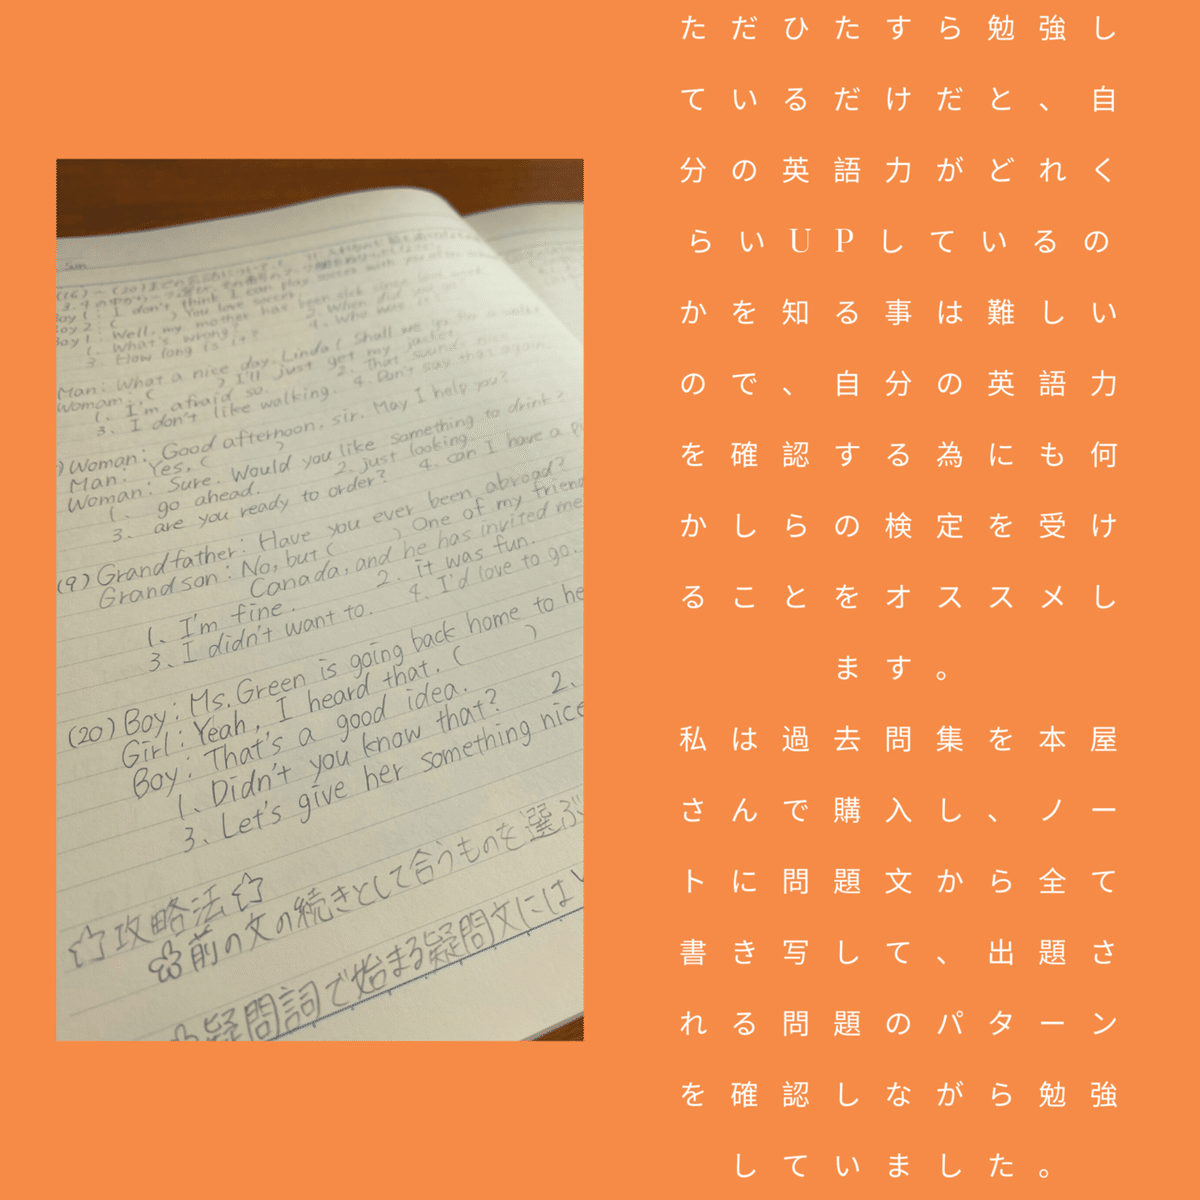 ただひたすら勉強し
ているだけだと、自
分の英語力がどれく
らいUPしているの
かを知る事は難しい
ので、自分の英語力
を確認する為にも何
かしらの検定を受け
ることをオススメし
ます。
私は過去問集を本屋
さんで購入し、ノー
トに問題文から全て
書き写して、出題さ
れる問題のパターン
を確認しながら勉強
していました。
Boy1: I don't think I can play soccer with
Boy2: ( ) You love soccer.
Boy1: Well, my mother has been sick since
1. What's wrong? 2. When did you
3. How long is it? 4. Who was
Man: What a nice day, Linda! Shall we go for a walk
Woman: ( ) I'll just get my jacket.
1. I'm afraid so. 2. That sounds nice
3. I don't like walking. 4. Don't say that again.
) Woman: Good afternoon, sir. May I help you?
Man: Yes. ( )
Woman: Sure. Would you like something to drink?
1. go ahead. 2. just looking
3. are you ready to order? 4. can I have a
(9) Grandfather: Have you ever been abroad?
Grandson: No, but ( ) One of my
Canada, and he has invited me
1. I'm fine. 2. it was fun.
3. I didn't want to. 4. I'd love to go.
(20) Boy: Ms. Green is going back home to
Girl: Yeah, I heard that. ( )
Boy: That's a good idea.
1. Didn't you know that? 2.
3. Let's give her something nice
☆攻略法☆
前の文の続きとして合うものを選ぶ
疑問詞で始まる疑問文には